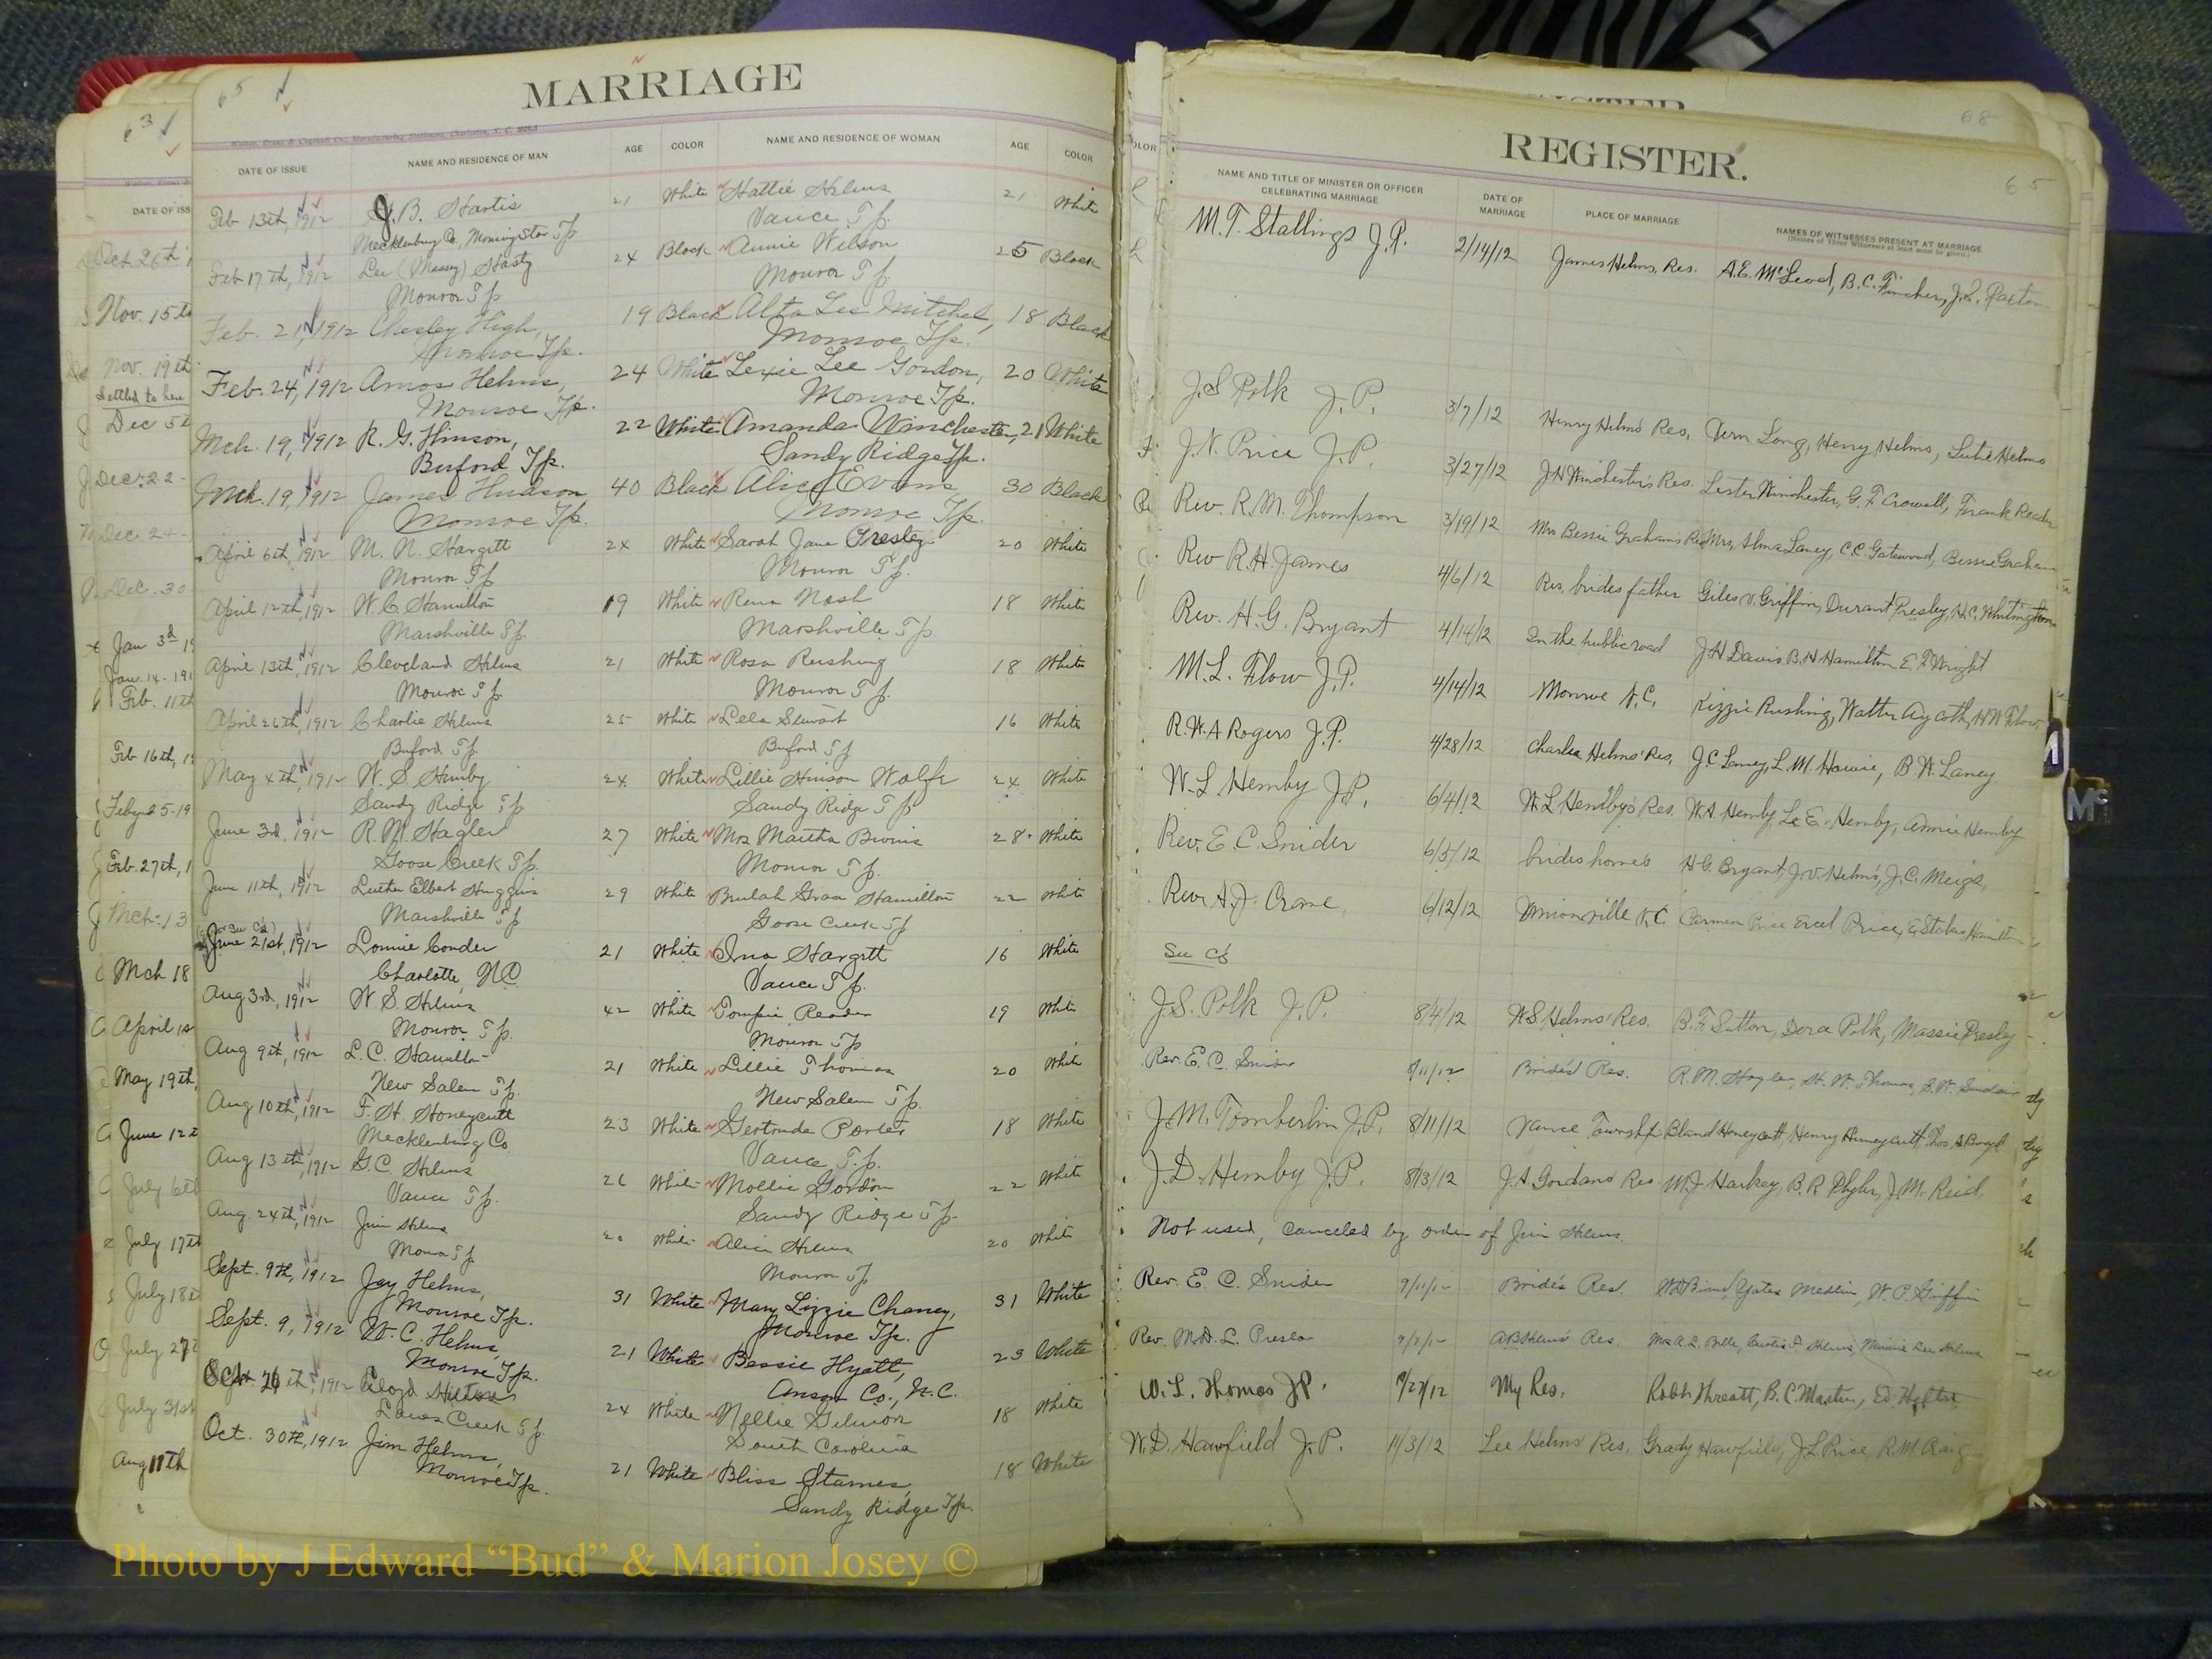 65
MARRIAGE
DATE OF ISSUE NAME AND RESIDENCE OF MAN AGE COLOR NAME AND RESIDENCE OF WOMAN AGE COLOR
Feb 13th, 1912 J.B. Hartis 21 White Hattie Helms 21 White
Mecklenburg Co., Morning Star Tp Vance Tp.
Feb 17th, 1912 Lee (Massey) Hasty 24 Black Annie Wilson 25 Black
Monroe Tp Monroe Tp
Feb. 21, 1912 Chesley High, 19 Black Alta Lee Mitchel, 18 Black
Monroe Tp. Monroe Tp.
Feb. 24, 1912 Amos Helms, 24 White Lexie Lee Gordon, 20 White
Monroe Tp. Monroe Tp.
Mch. 19, 1912 R. G. Hinson, 22 White Amanda Winchester, 21 White
Buford Tp. Sandy Ridge Tp.
Mch. 19, 1912 James Hudson 40 Black Alice Evans 30 Black
Monroe Tp. Monroe Tp.
April 6th, 1912 M. N. Hargett 24 White Sarah Jane Presley 20 White
Monroe Tp Monroe Tp.
April 12th, 1912 W. C. Hamilton 19 White Rena Nash 18 White
Marshville Tp. Marshville Tp
April 13th, 1912 Cleveland Helms 21 White Rosa Rushing 18 White
Monroe Tp. Monroe Tp.
April 26th, 1912 Charlie Helms 25 White Lela Stewart 16 White
Buford Tp. Buford Tp
May 4th, 1912 W. S. Hemby 24 White Lillie Hinson Wolfe 24 White
Sandy Ridge Tp Sandy Ridge Tp
June 3rd, 1912 R. M. Hagler 27 White Mrs Martha 28 White
Goose Creek Tp. Monroe Tp.
June 11th, 1912 Luther Elbert Huggins 29 White Beulah Hamilton 22 White
Marshville Tp Goose Creek Tp
June 21st, 1912 Lonnie Conder 21 White Ina Hargett 16 White
Charlotte, N.C. Vance Tp.
Aug 3rd, 1912 W. S. Helms 42 White 19 White
Monroe Tp. Monroe Tp
Aug 9th, 1912 L. C. Hamilton 21 White Lillie Thomas 20 White
New Salem Tp. New Salem Tp.
Aug 10th, 1912 F. H. Honeycutt 23 White Gertrude Porter 18 White
Mecklenburg Co. Vance Tp.
Aug 13th, 1912 G. C. Helms 26 White Mollie Gordon 22 White
Vance Tp. Sandy Ridge Tp.
Aug. 24th, 1912 Jim Helms 20 White Alice Helms 20 White
Monroe Tp Monroe Tp
Sept. 9th, 1912 Jay Helms, 31 White Mary Lizzie Chaney, 31 White
Monroe Tp. Monroe Tp.
Sept. 9, 1912 W. C. Helms, 21 White Bessie Hyatt, 23 White
Monroe Tp. Anson Co., N.C.
26th, 1912 24 White Nellie Gilmore 18 White
Lanes Creek Tp. South Carolina
Oct. 30th, 1912 Jim Helms, 21 White Bliss Starnes, 18 White
Monroe Tp. Sandy Ridge Tp.
63
DATE OF ISS
Oct. 26th
Nov. 15th
Nov. 19th
Settled to here
Dec 5
Dec. 22
Dec. 24
Dec. 30
Jan 3d
Jan. 14
Feb. 11th
Feb 16th
Feby 25
Feb. 27th
Mch. 13
Mch 18
April
May 19th
June 12
July 6th
July 17th
July 18
July 27
July 31st
Aug 11th
68
65
REGISTER.
NAME AND TITLE OF MINISTER OR OFFICER CELEBRATING MARRIAGE DATE OF MARRIAGE PLACE OF MARRIAGE NAMES OF WITNESSES PRESENT AT MARRIAGE
(Names of Three Witnesses at least must be given.)
M. T. Stallings J.P. 2/14/12 James Helms, Res. A.E. McLeod, B.C. Fincher, J.L. Paxton
J.S Polk J.P. 3/7/12 Henry Helms Res. Vern Long, Henry Helms, Helms
J.N. Price J.P. 3/27/12 J.N Winchester's Res. Lester Winchester, G. F. Crowell, Frank Reader
Rev. R.M. Thompson 3/19/12 Mrs Bessie Graham's Res Mrs. Alma Laney, C.C. Gatewood, Bessie Graham
Rev R.H. James 4/6/12 Res. brides father Giles Griffin, Durant Presley, H.C. Whitington
Rev. H. G. Bryant 4/14/12 In the public road J.H Davis, B.H Hamilton E. F. Wright
M.L. Flow J.P. 4/14/12 Monroe N.C. Kizzie Rushing, Walter Aycoth, H W Flow
R.W.A Rogers J.P. 4/28/12 Charlie Helms' Res, J.C Laney, L.M. Howie, B.W. Laney
W. L Hemby J.P. 6/4/12 W. L Hemby's Res. W.A. Hemby, Hemby, Annie Hemby
Rev. E. C. Snider 6/5/12 brides home H.G. Bryant, J.V. Helms, J.C. Meigs,
Rev A.J. Crane 6/12/12 Unionville N.C. Carmen Price Ercel Price, Hamilton
See Ctf
J.S. Polk J.P. 8/4/12 W.S. Helms' Res. B.F. Sutton, Dora Polk, Massie Presley
Rev. E. C. Snider 8/11/12 Bride's Res. R. M. Hagler, H. W. Thomas,
J.M. Tomberlin J.P. 8/11/12 Vance Township Bland Honeycutt Henry Honeycutt Thos Boyd
J. D. Hemby J.P. 8/13/12 J. A Gordans Res M.J. Harkey, B. R Plyler, J.M. Reid.
Not used, canceled by order of Jim Helms.
Rev. E. C. Snider 9/11/12 Bride's Res. Yates Medlin, W. P. Griffin
Rev. M. D. L. Preslar A B Helms' Res. Minnie Lee Helms
W. L. Thomas JP. My Res. Robt. Threatt, B. C. Martin,
W. D. Hawfield J.P. 11/3/12 Lee Helms' Res. Grady Hawfield, J.L Price, R. M
Photo by J Edward “Bud” & Marion Josey ©